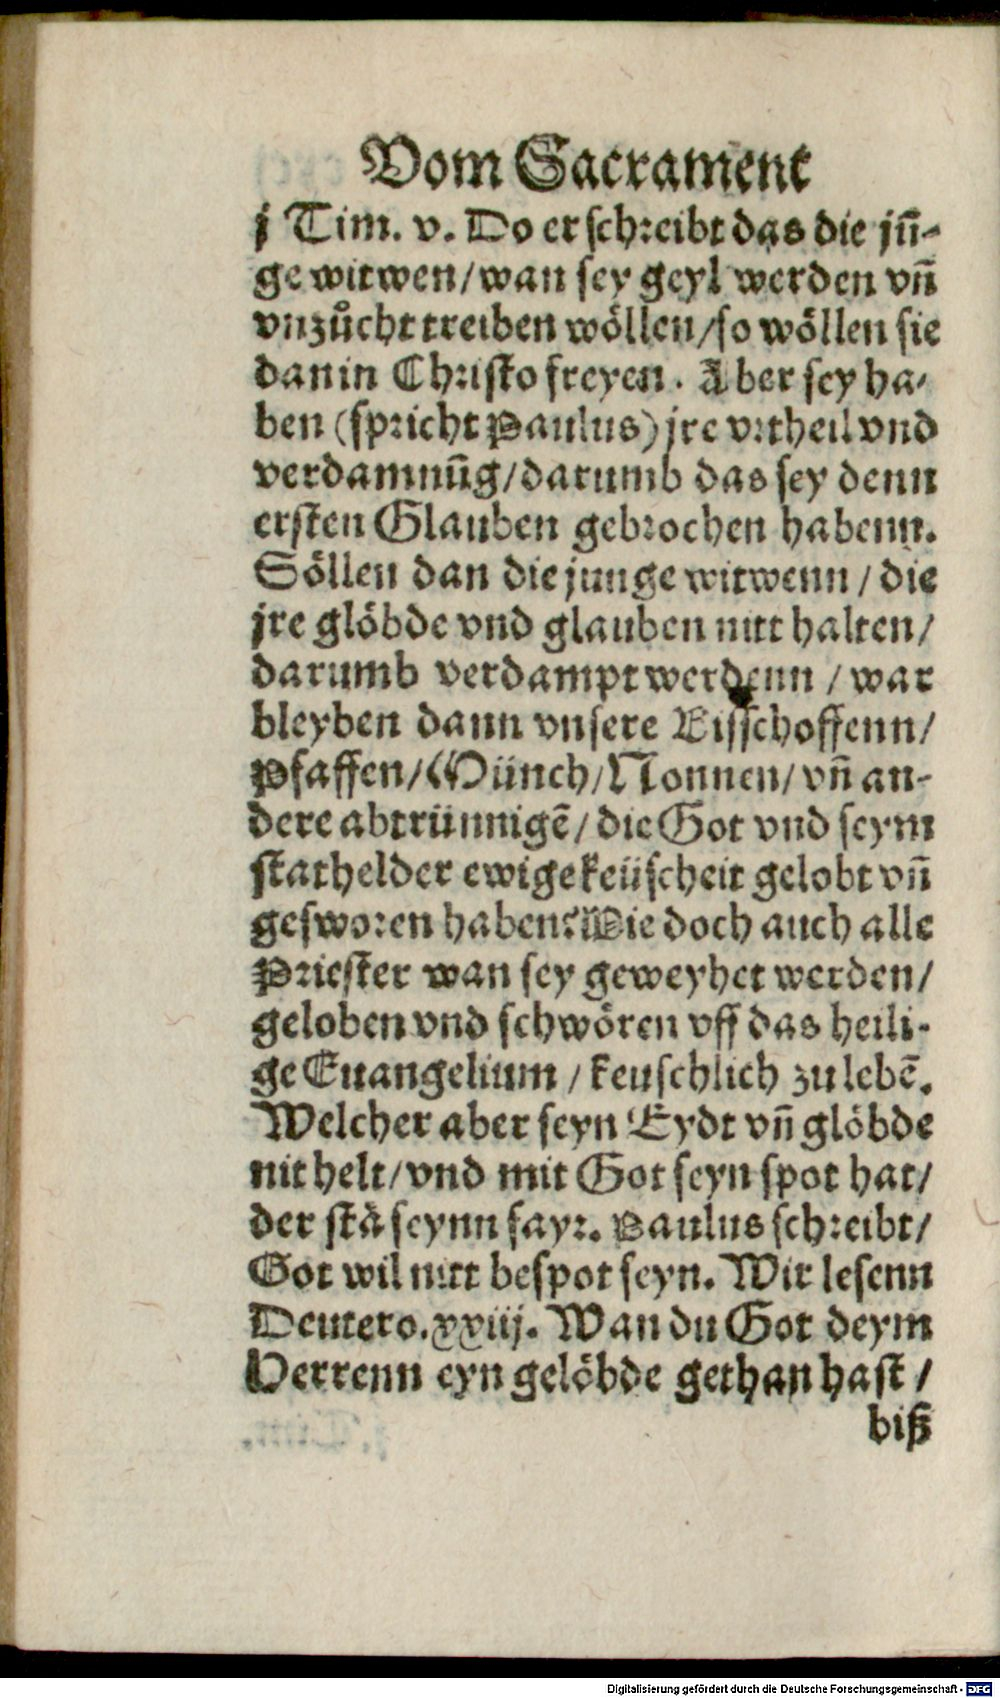 Vom Sacrament
j Tim. v. Do er schreibt das die jun̄-
ge witwen/wan sey geyl werden vn̄
vnzůcht treiben wöllen/so wöllen sie
dan in Christo freyen. Aber sey ha-
ben (spricht Paulus) jre vrtheil vnd
verdamnūg/darumb das sey denn
ersten Glauben gebrochen habenn.
Söllen dan die junge witwenn/die
jre glöbde vnd glauben nitt halten/
darumb verdampt werdenn/war
bleyben dann vnsere Bisschoffenn/
Pfaffen/Münch/Nonnen/vn̄ an-
dere abtrünnigē/die Got vnd seym
stathelder ewige keüscheit gelobt vn̄
gesworen haben? Wie doch auch alle
Priester wan sey geweyhet werden/
geloben vnd schwören vff das heili-
ge Euangelium/keuschlich zu lebē.
Welcher aber seyn Eydt vn̄ glöbde
nit helt/vnd mit Got seyn spot hat/
der stā seynn fayr. Paulus schreibt/
Got wil nitt bespot seyn. Wir lesenn
Deutero.xxiij. Wan du Got deym
Herrenn eyn gelöbde gethan hast/
biß
Digitalisierung gefördert durch die Deutsche Forschungsgemeinschaft - DFG